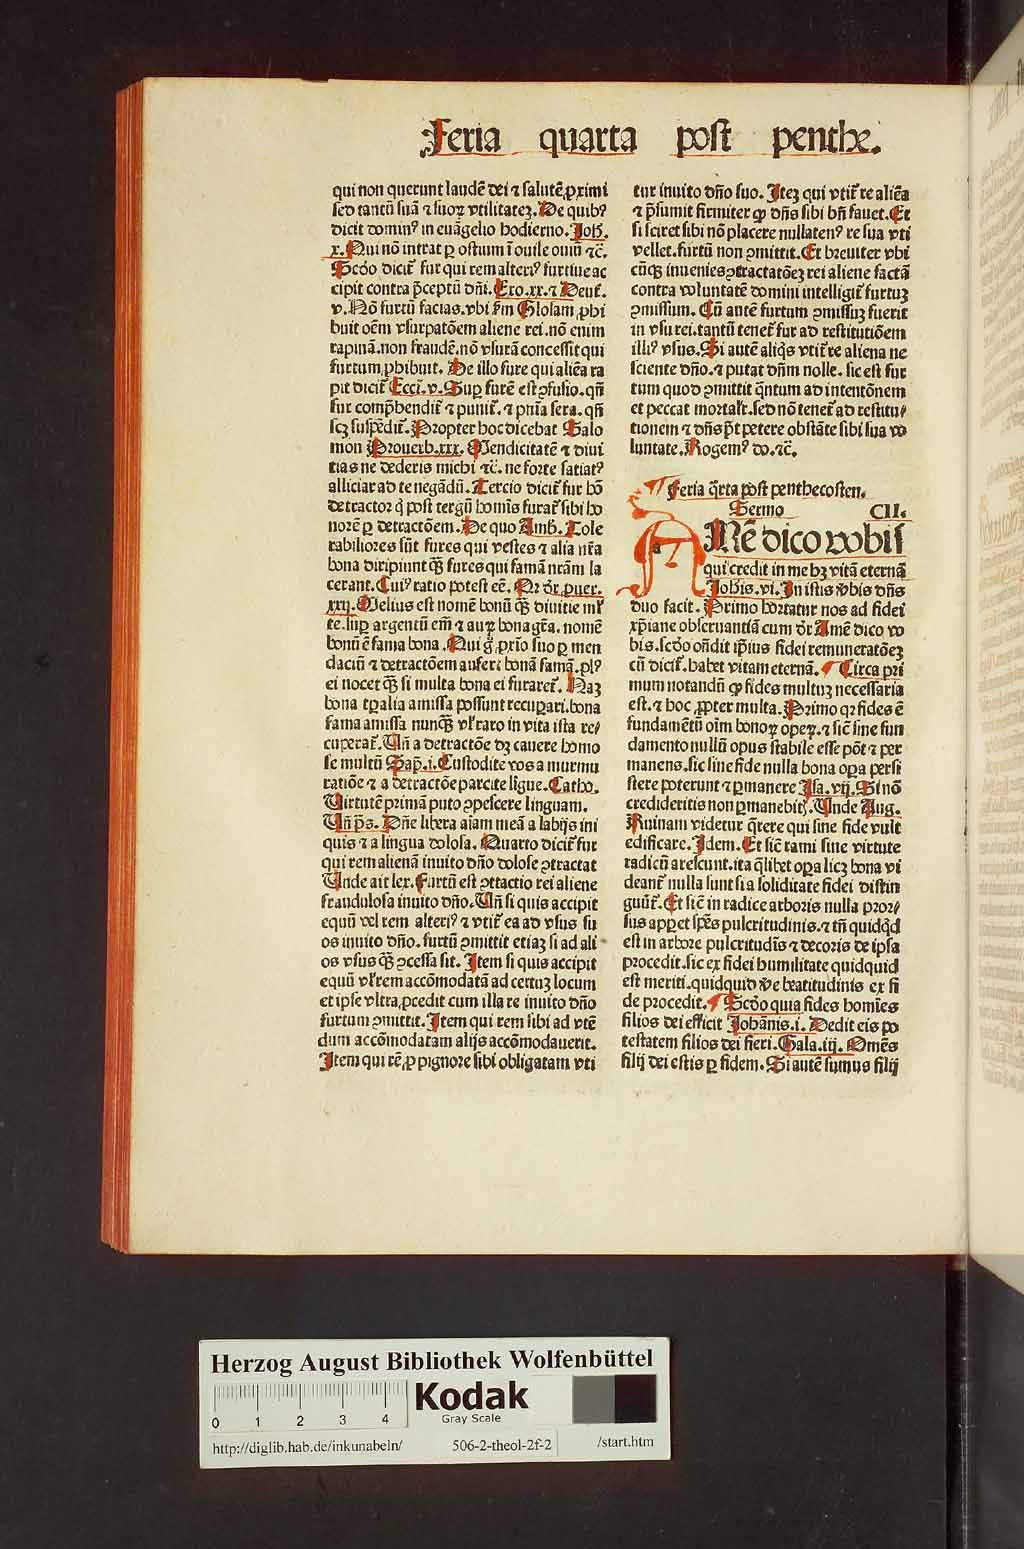 Feria quarta post penthe.
qui non querunt laudē dei ⁊ salutē ꝓximi
sed tantū suā ⁊ suoꝝ vtilitateꝫ. De quibꝰ
dicit dominꝰ in euāgelio hodierno. Joh̄.
x. Qui nō intrat ꝑ ostium ī ouile ouiū ⁊c̄.
Scd̄o dicit̄ fur qui rem alteriꝰ furtiue ac
cipit contra p̄ceptū dn̄i. Exo. xx. ⁊ Deut̄.
v. Nō furtū facias. vbi ẜm Glosam ꝓhi
buit oēm vsurpatōem aliene rei. nō enim
rapinā. non fraudē. nō vsurā concessit qui
furtum ꝓhibuit. De illo fure qui aliēa ra
pit dicit̄ Ecci. v. Suꝑ furē est ꝯfusio. qn̄
fur comp̄hendit̄ ⁊ punit̄. ⁊ pn̄ia sera. qn̄
scꝫ suspēdit̄. Propter hoc dicebat Salo
mon Prouerb. xxx. Mendicitatē ⁊ diui
tias ne dederis michi ⁊c̄. ne forte satiatꝰ
alliciar ad te negādū. Tercio dicit̄ fur hō
detractor q̇ post tergū homīs furat̄ sibi ho
norē ꝑ detractōem. De quo Amb. Tole
rabiliores sūt fures qui vestes ⁊ alia nr̄a
bona diripiunt qꝫ̄ fures qui famā nrām la
cerant. Cuiꝰ ratio potest eē. Qr dr̄ puer.
xxij. Melius est nomē bonū qꝫ̄ diuitie ml̄
te. suꝑ argentū em̄ ⁊ auꝝ bona gr̄a. nomē
bonū ē fama bona. Qui g̊ ꝓxīo suo ꝑ men
daciū ⁊ detractōem aufert bonā famā. plꝰ
ei nocet qꝫ̄ si multa bona ei furaret̄. Naꝫ
bona tꝑalia amissa possunt recuꝑari. bona
fama amissa nunqꝫ̄ vl̓ raro in vita ista re⸗
cuperat̄. Un̄ a detractōe dꝫ cauere homo
se multū Sap̄. i. Custodite vos a murmu
ratiōe ⁊ a detractōe parcite ligue. Catho.
Uirtutē primā puto ꝯpescere linguam.
Un̄ p̄s. Dn̄e libera aīam meā a labijs ini
quis ⁊ a lingua dolosa. Quarto dicit̄ fur
qui rem alienā inuito dn̄o dolose ꝯtractat
Unde ait lex. Furtū est ꝯttactio rei aliene
fraudulosa inuito dn̄o. Un̄ si quis accipit
equū vel rem alteriꝰ ⁊ vtit̄ ea ad vsus su
os inuito dn̄o. furtū ꝯmittit etiaꝫ si ad ali
os vsus qꝫ̄ ꝯcessa sit. Item si quis accipit
equū vl̓ rem accōmodatā ad certuꝫ locum
et ipse vltra ꝓcedit cum illa re inuito dn̄o
furtum ꝯmittit. Item qui rem sibi ad vtē
dum accōmodatam alijs accōmodauerit.
Item qui rē ꝓ pignore sibi obligatam vti
tur inuito dn̄o suo. Iteꝫ qui vtit̄ re aliēa
⁊ p̄sumit firmiter ꝙ dn̄s sibi bn̄ fauet. Et
si sciret sibi nō placere nullatenꝰ re sua vti
vellet. furtū non ꝯmittit. Et breuiter vbi
cūqꝫ inuenies ꝯtractatōeꝫ rei aliene factā
contra voluntatē domini intelligit̄ furtuꝫ
ꝯmissum. Cū autē furtum ꝯmissuꝫ fuerit
in vsu rei. tantū tenet̄ fur ad restitutiōem
illiꝰ vsus. Si autē aliq̇s vtit̄ re aliena ne
sciente dn̄o. ⁊ putat dn̄m nolle. sic est fur
tum quod ꝯmittit q̄ntum ad intentōnem
et peccat mortalr̄. sed nō tenet̄ ad restitu⸗
tionem ⁊ dn̄s p̄t petere obstāte sibi sua vo
luntate. Rogemꝰ do. ⁊c̄.
Feria q̄rta post penthecosten.
Sermo CII.
AMē dico vobis
qui credit in me hꝫ vitā eternā
Johīs. vi. In istis v̓bis dn̄s
duo facit. Primo hortatur nos ad fidei
xp̄iane obseruantiā cum dr̄ Amē dico vo
bis. scd̄o on̄dit ip̄ius fidei remuneratōeꝫ
cū dicit̄. habet vitam eternā. Circa pri
mum notandū ꝙ fides multuꝫ necessaria
est. ⁊ hoc ꝓpter multa. Primo qꝛ fides ē
fundamētū oīm bonoꝝ opeꝝ. ⁊ sic̄ sine fun
damento nullū opus stabile esse pōt ⁊ per
manens. sic sine fide nulla bona oꝑa persi
stere poterunt ⁊ ꝑmanere Isa. vij. Si nō
credideritis non ꝑmanebitꝭ. Unde Aug.
Ruinam videtur q̄rere qui sine fide vult
edificare. Idem. Et sic̄ rami sine virtute
radicū arescunt. ita q̄libet oꝑa licꝫ bona vi
deant̄ nulla sunt si a soliditate fidei distin
guūt̄. Et sic̄ in radice arboris nulla pror⸗
sus apꝑet spēs pulcritudinis. ⁊ tn̄ quidq̇d
est in arbore pulcritudīs ⁊ decoris de ipsa
procedit. sic ex fidei humilitate quidquid
est meriti. quidquid v̓e beatitudinis ex fi
de procedit. Scd̄o quia fides homīes
filios dei efficit Johānis. i. Dedit eis po
testatem filios dei fieri. Gala. iij. Omēs
filij dei estis ꝑ fidem. Si autē sumus filij
Herzog August Bibliothek Wolfenbüttel
0 1 2 3 4
Kodak
Gray Scale
http://diglib.hab.de/inkunabeln/ 506-2-theol-2f-2 /start.htm